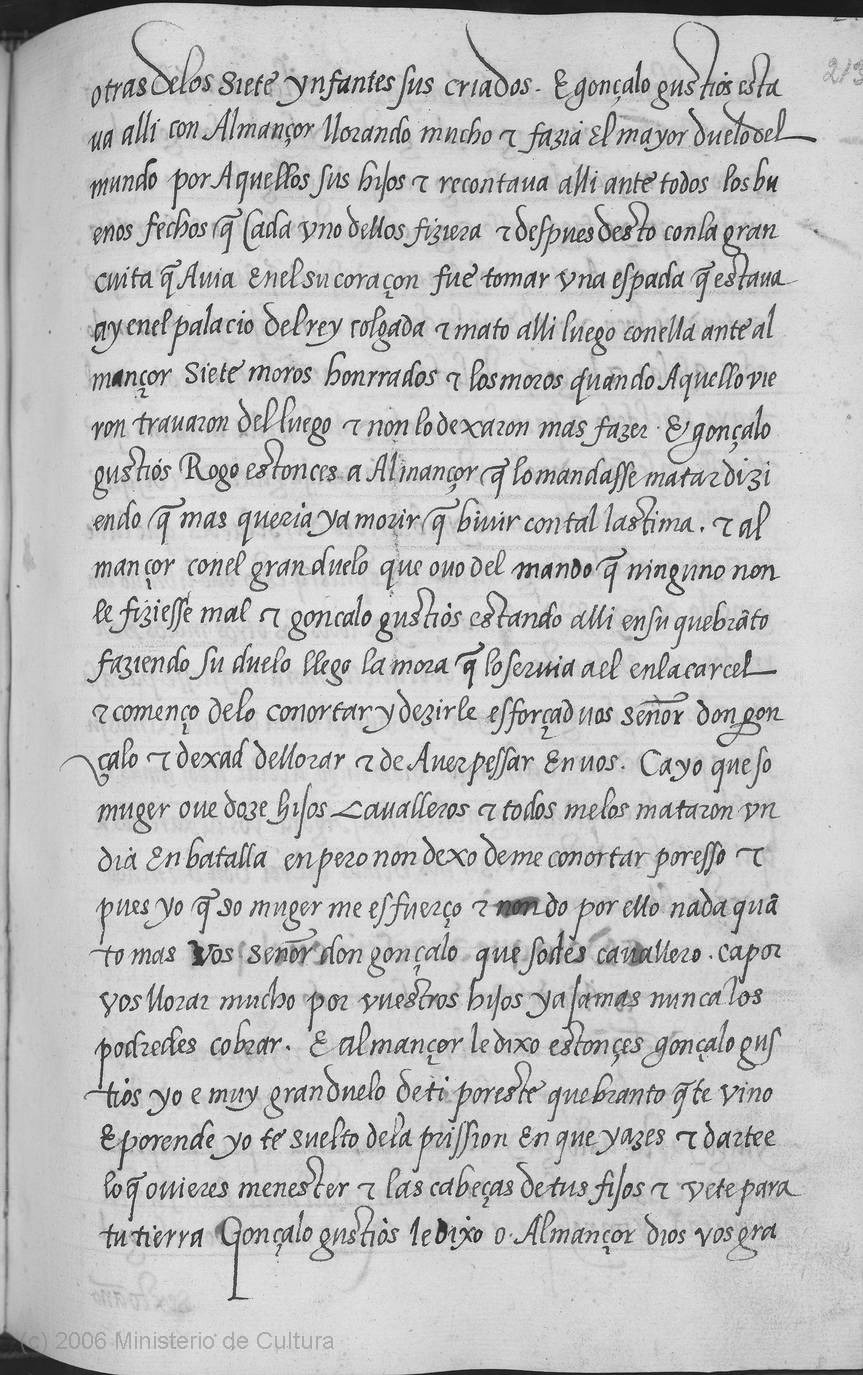 213
otras delos siete ynfantes sus criados. E gonçalo gustiós esta
ua alli con Almançor llorando mucho & fazià El mayor duelo del
mundo por Aquellos sus hijos & recontaua alli ante todos los bu
enos fechos q̃ Cada vno dellos fiziera & despues desto con la gran
cuita q̃ Auia En el su coraçon fue tomar vna espada q̃ estaua
ay en el palacio del rey colgada & mato alli luego con ella ante al
mançor siete moros honrrados & los moros quando Aquello vie
ron trauaron del luego & non lo dexaron mas fazer. E gonçalo
gustiós Rogo estonces a Almançor q̃ lo mandasse matar dizi
endo q̃ mas queria ya morir q̃ biuir con tal lastima. & al
mançor con el gran duelo que ouo del mando q̃ ninguno non
le fiziesse mal & goncalo gustiòs estando alli en su quebrãto
faziendo su duelo llego la mora q̃ lo seruia a el en la carcel
& començo delo conortar y dezirle esforçad uos señor don gon
çalo & dexad dellorar & de Auer pessar En uos. Ca yo que so
muger oue doze hijos Caualleros & todos me los mataron vn
dia En batalla enpero non dexo de me conortar por esso &
pues yo q̃ so muger me esfuerço & non do por ello nada quã
to mas Vos señor don gonçalo que sodes cauallero. ca por
vos llorar mucho por vuestros hijos ya jamas nunca los
podredes cobrar. E almançor le dixo estonçes gonçalo gus
tiòs yo e muy gran duelo de ti por este quebranto q̃ te vino
E por ende yo te suelto dela prission En que yazes & dartee
lo q̃ ouieres menester & las cabeças de tus fijos & vete para
tu tierra Gonçalo gustiòs le Dixo o Almançor dios vos gra
(c) 2006 Ministerio de Cultura